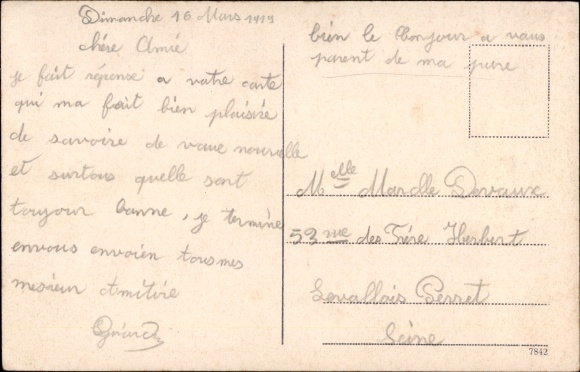 Dimanche 16 Mars 1913
chère Amié
je fait réponse a votre carte
qui ma fait bien plaisire
de savoire de vaue nouvelle
et surtous quelle sont
toujour bonne, je termine
envous envoien tousmes
mesieur Amitiré
bien le bonjour a vaus
parent de ma pare
Melle Marcelle Devaux
53 rue des Frére Herbert
Levallois Perret
Seine
7842